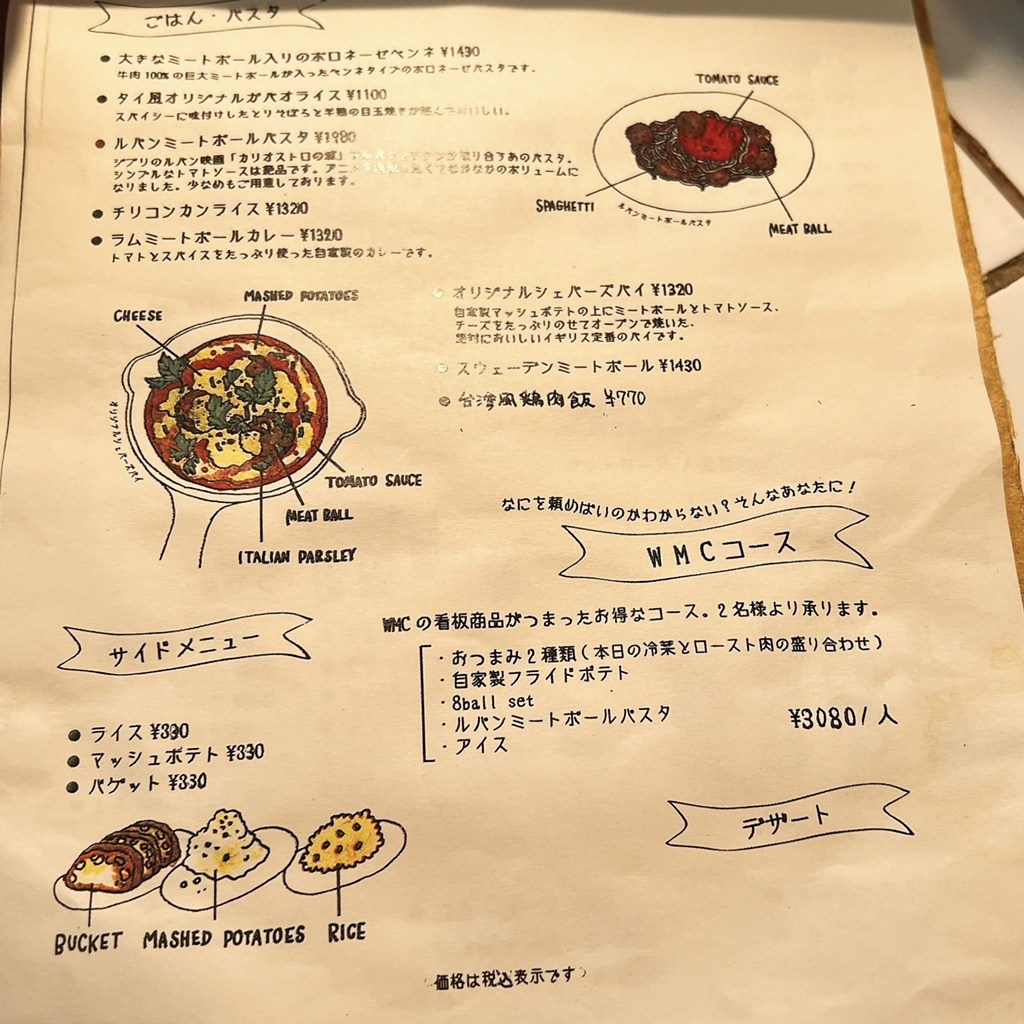 ごはん・パスタ
● 大きなミートボール入りのボロネーゼペンネ ¥1430
牛肉100%の巨大ミートボールが入ったペンネタイプのボロネーゼパスタです。
● タイ風オリジナルガパオライス ¥1100
スパイシーに味付けしたとりそぼろと半熟の目玉焼きが絡んでおいしい。
● ルパンミートボールパスタ ¥1980
ジブリのルパン映画「カリオストロの城」でルパンと が取り合うあのパスタ。
シンプルなトマトソースは絶品です。アニメ なかなかのボリュームに
なりました。少なめもご用意しております。
● チリコンカンライス ¥1320
● ラムミートボールカレー ¥1320
トマトとスパイスをたっぷり使った自家製のカレーです。
TOMATO SAUCE
SPAGHETTI
ルパンミートボールパスタ
MEAT BALL
MASHED POTATOES
CHEESE
オリジナルシェパーズパイ
TOMATO SAUCE
MEAT BALL
ITALIAN PARSLEY
● オリジナルシェパーズパイ ¥1320
自家製マッシュポテトの上にミートボールとトマトソース、
チーズをたっぷりのせてオーブンで焼いた、
絶対においしいイギリス定番のパイです。
● スウェーデンミートボール ¥1430
● 台湾風鶏肉飯 ¥770
なにを頼めばいのかわからない?そんなあなたに!
WMCコース
WMCの看板商品がつまったお得なコース。2名様より承ります。
・おつまみ2種類(本日の冷菜とロースト肉の盛り合わせ)
・自家製フライドポテト
・8ball set
・ルパンミートボールパスタ
・アイス
¥3080/人
サイドメニュー
● ライス ¥330
● マッシュポテト ¥330
● バゲット ¥330
BUCKET MASHED POTATOES RICE
デザート
価格は税込表示です